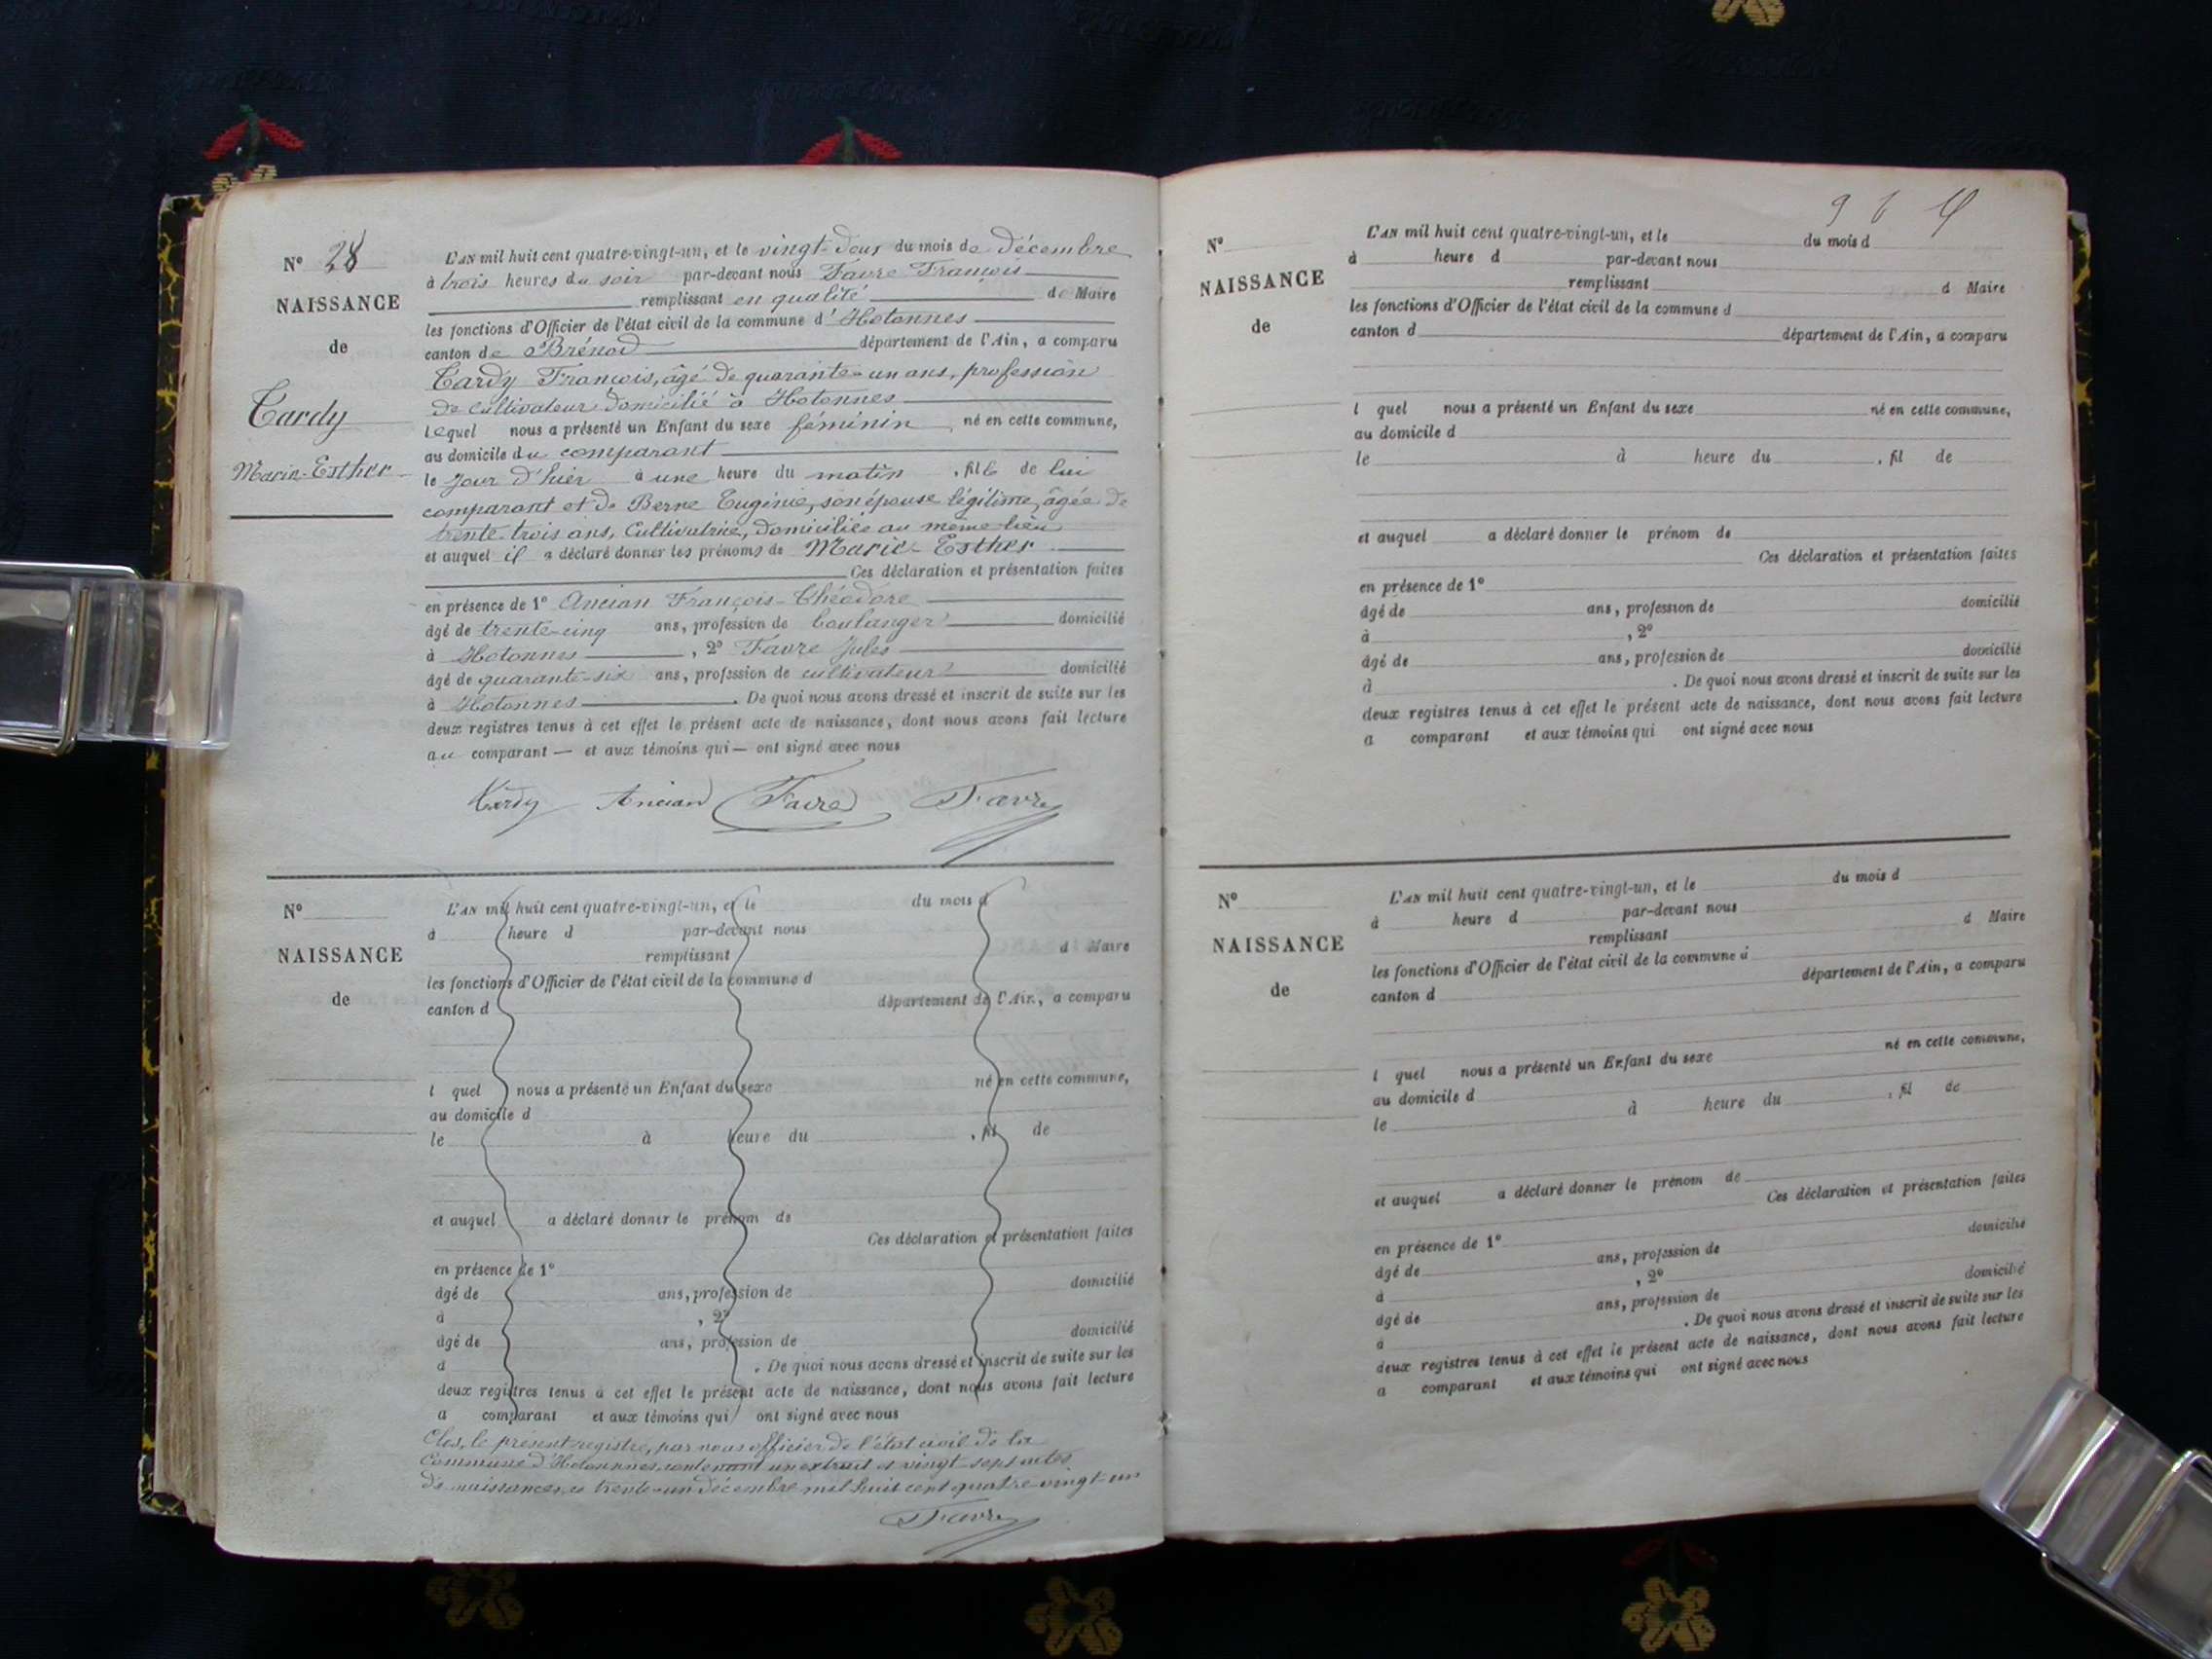 Nº 28
NAISSANCE
de
Tardy
Marie-Esther
L'AN mil huit cent quatre-vingt-un, et le vingt-deux du mois de décembre
à trois heures du soir par-devant nous Favre François
remplissant en qualité de Maire
les fonctions d'Officier de l'état civil de la commune d'Hotonnes
canton de Brénod département de l'Ain, a comparu
Tardy François, âgé de quarante-un ans, profession
de cultivateur domicilié à Hotonnes
lequel nous a présenté un Enfant du sexe féminin, né en cette commune,
au domicile du comparant
le jour d'hier à une heure du matin, fille de lui
comparant et de Berne Eugénie, son épouse légitime, âgée de
trente-trois ans, Cultivatrice, domiciliée au même lieu
et auquel il a déclaré donner les prénoms de Marie-Esther
Ces déclaration et présentation faites
en présence de 1º Ancian François-Théodore
âgé de trente-cinq ans, profession de boulanger domicilié
à Hotonnes, 2º Favre Jules
âgé de quarante-six ans, profession de cultivateur domicilié
à Hotonnes. De quoi nous avons dressé et inscrit de suite sur les
deux registres tenus à cet effet le présent acte de naissance, dont nous avons fait lecture
au comparant — et aux témoins qui — ont signé avec nous
Tardy Ancian Favre Favre
Nº
NAISSANCE
de
L'AN mil huit cent quatre-vingt-un, et le du mois d
à heure d par-devant nous
remplissant d Maire
les fonctions d'Officier de l'état civil de la commune d
canton d département de l'Ain, a comparu
l quel nous a présenté un Enfant du sexe né en cette commune,
au domicile d
le à heure du , fil de
et auquel a déclaré donner le prénom de
Ces déclaration et présentation faites
en présence de 1º
âgé de ans, profession de domicilié
à , 2º
âgé de ans, profession de domicilié
à . De quoi nous avons dressé et inscrit de suite sur les
deux registres tenus à cet effet le présent acte de naissance, dont nous avons fait lecture
a comparant et aux témoins qui ont signé avec nous
Clos, le présent registre, par nous officier de l'état civil de la
Commune d'Hotonnes, contenant un extrait et vingt-sept actes
de naissances, ce trente-un décembre mil huit cent quatre-vingt-un
Favre
Nº
NAISSANCE
de
L'AN mil huit cent quatre-vingt-un, et le du mois d
à heure d par-devant nous
remplissant d Maire
les fonctions d'Officier de l'état civil de la commune d
canton d département de l'Ain, a comparu
l quel nous a présenté un Enfant du sexe né en cette commune,
au domicile d
le à heure du , fil de
et auquel a déclaré donner le prénom de
Ces déclaration et présentation faites
en présence de 1º
âgé de ans, profession de domicilié
à , 2º
âgé de ans, profession de domicilié
à . De quoi nous avons dressé et inscrit de suite sur les
deux registres tenus à cet effet le présent acte de naissance, dont nous avons fait lecture
a comparant et aux témoins qui ont signé avec nous
Nº
NAISSANCE
de
L'AN mil huit cent quatre-vingt-un, et le du mois d
à heure d par-devant nous
remplissant d Maire
les fonctions d'Officier de l'état civil de la commune d
canton d département de l'Ain, a comparu
l quel nous a présenté un Enfant du sexe né en cette commune,
au domicile d
le à heure du , fil de
et auquel a déclaré donner le prénom de
Ces déclaration et présentation faites
en présence de 1º
âgé de ans, profession de domicilié
à , 2º
âgé de ans, profession de domicilié
à . De quoi nous avons dressé et inscrit de suite sur les
deux registres tenus à cet effet le présent acte de naissance, dont nous avons fait lecture
a comparant et aux témoins qui ont signé avec nous